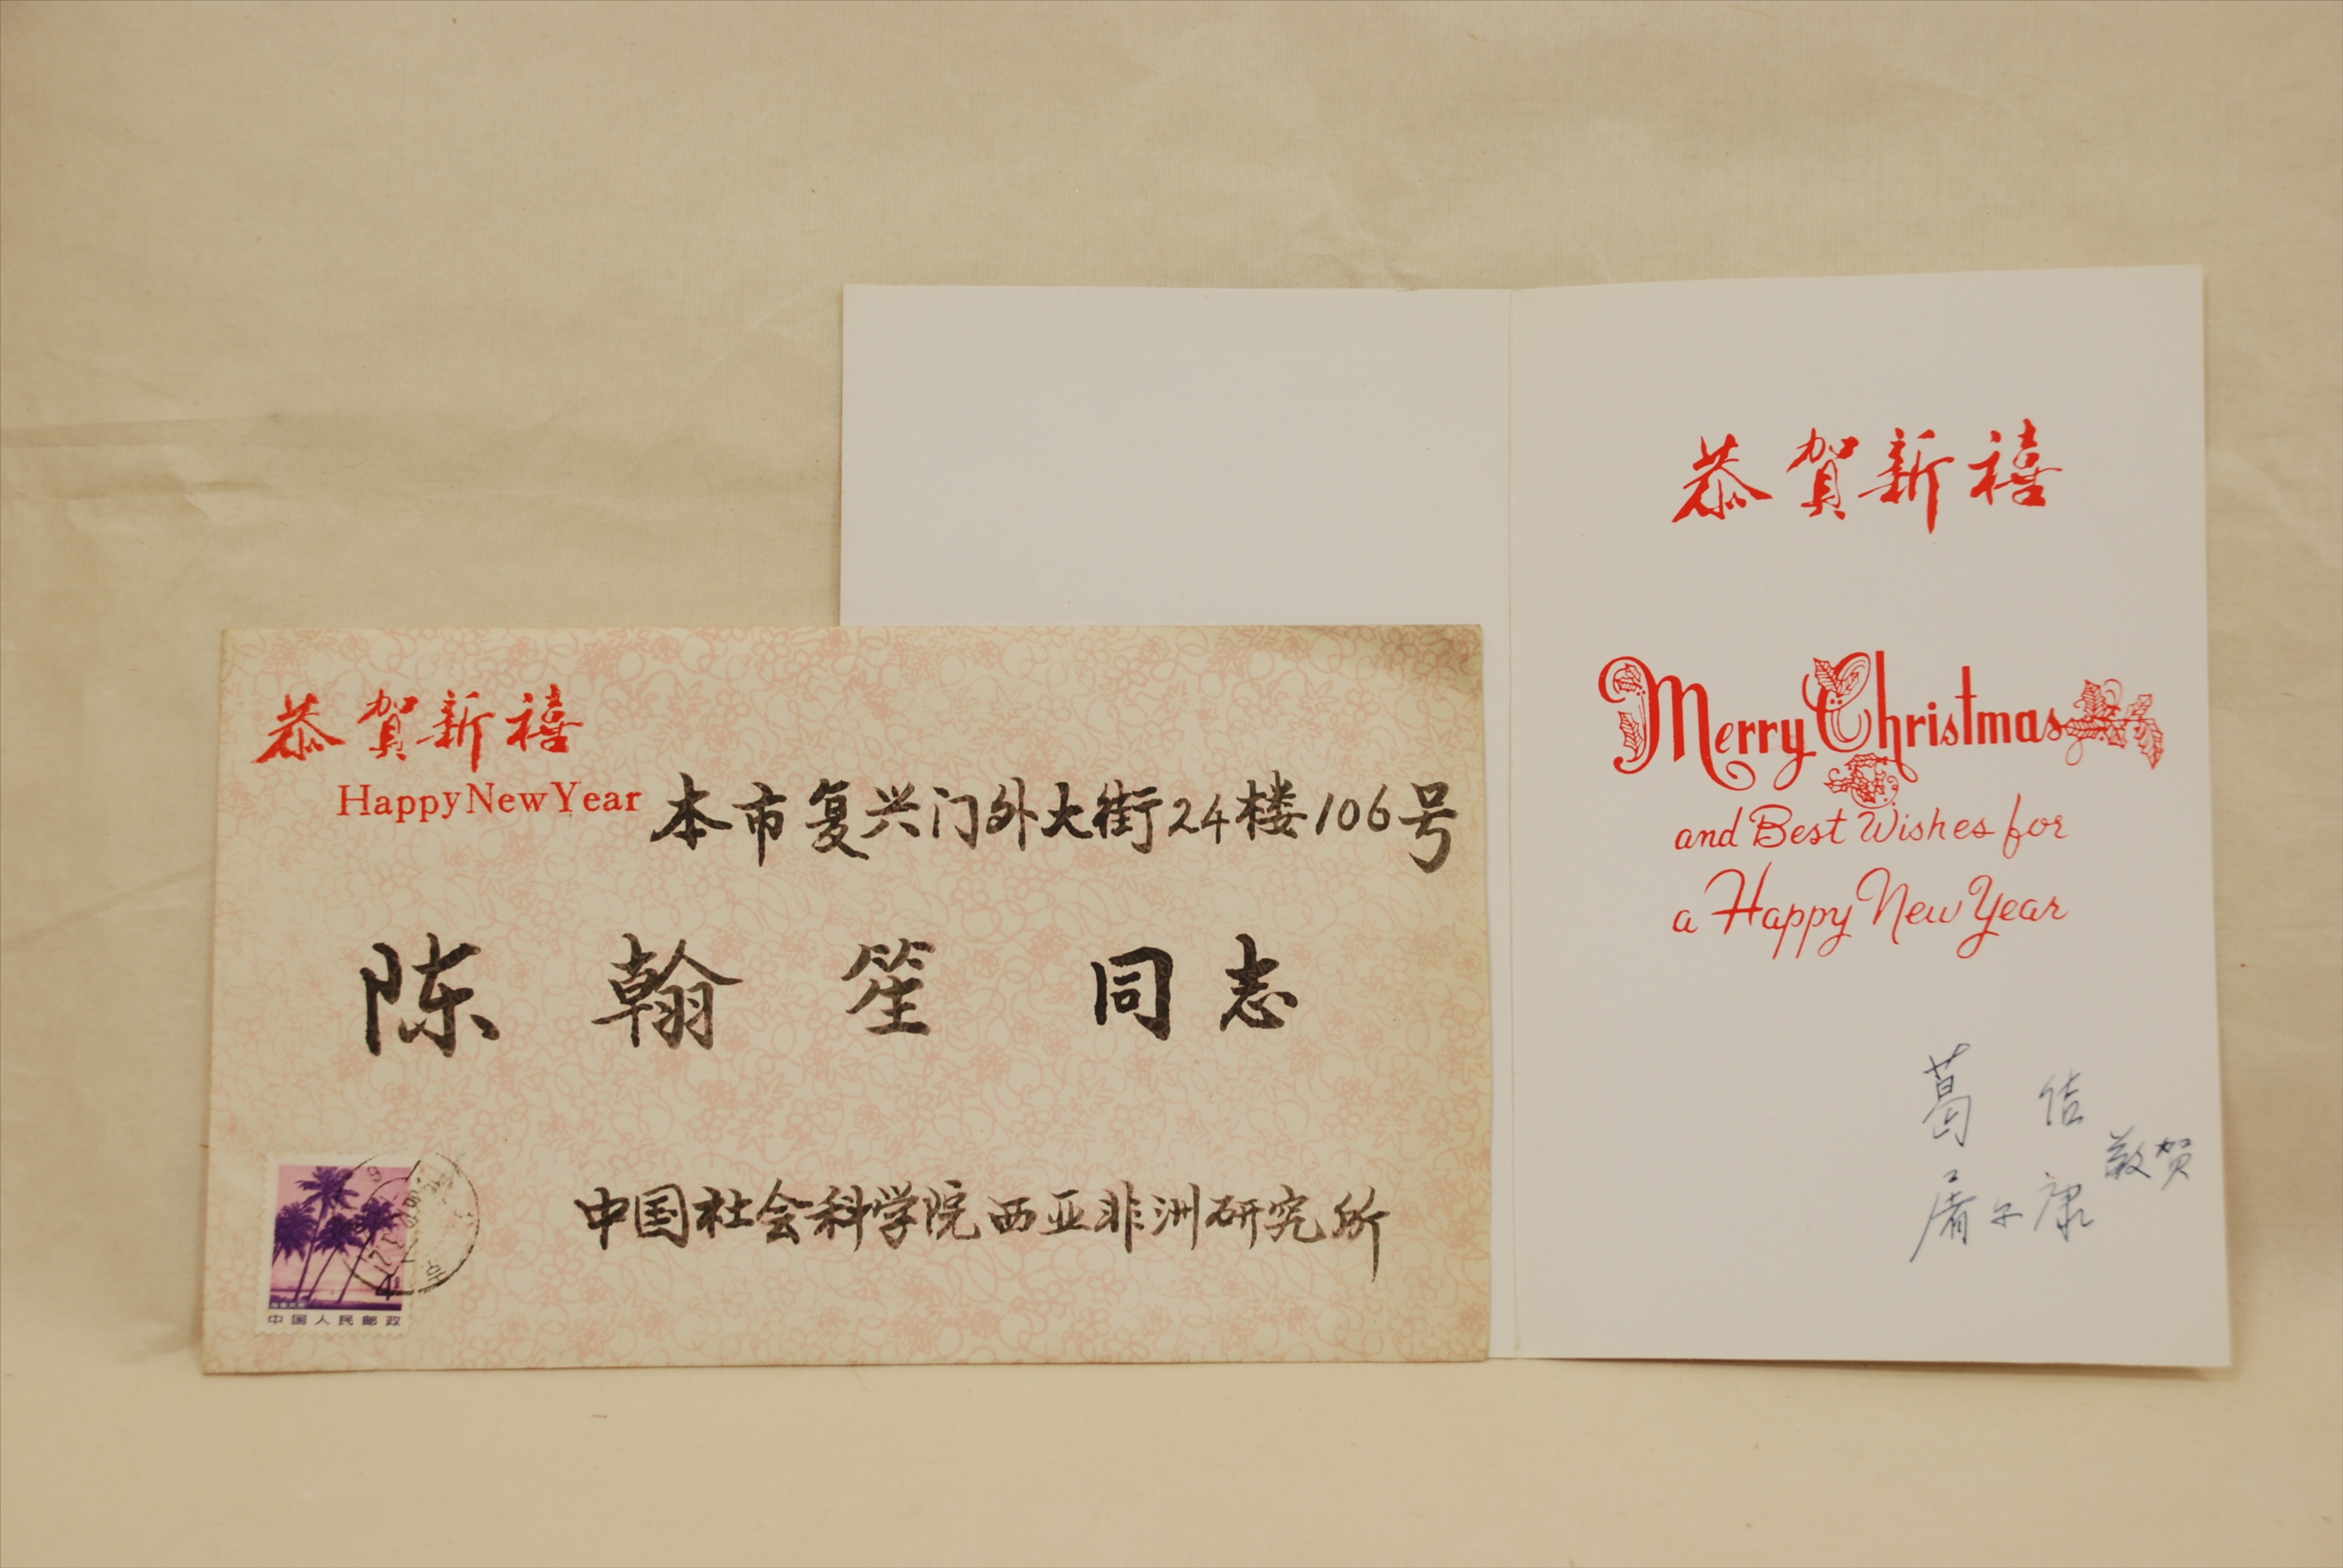 恭贺新禧
Happy New Year
本市复兴门外大街24楼106号
陈翰笙 同志
中国社会科学院西亚非洲研究所
4
中国人民邮政
恭贺新禧
Merry Christmas
and Best Wishes for
a Happy New Year
葛佶
屠尔康
敬贺